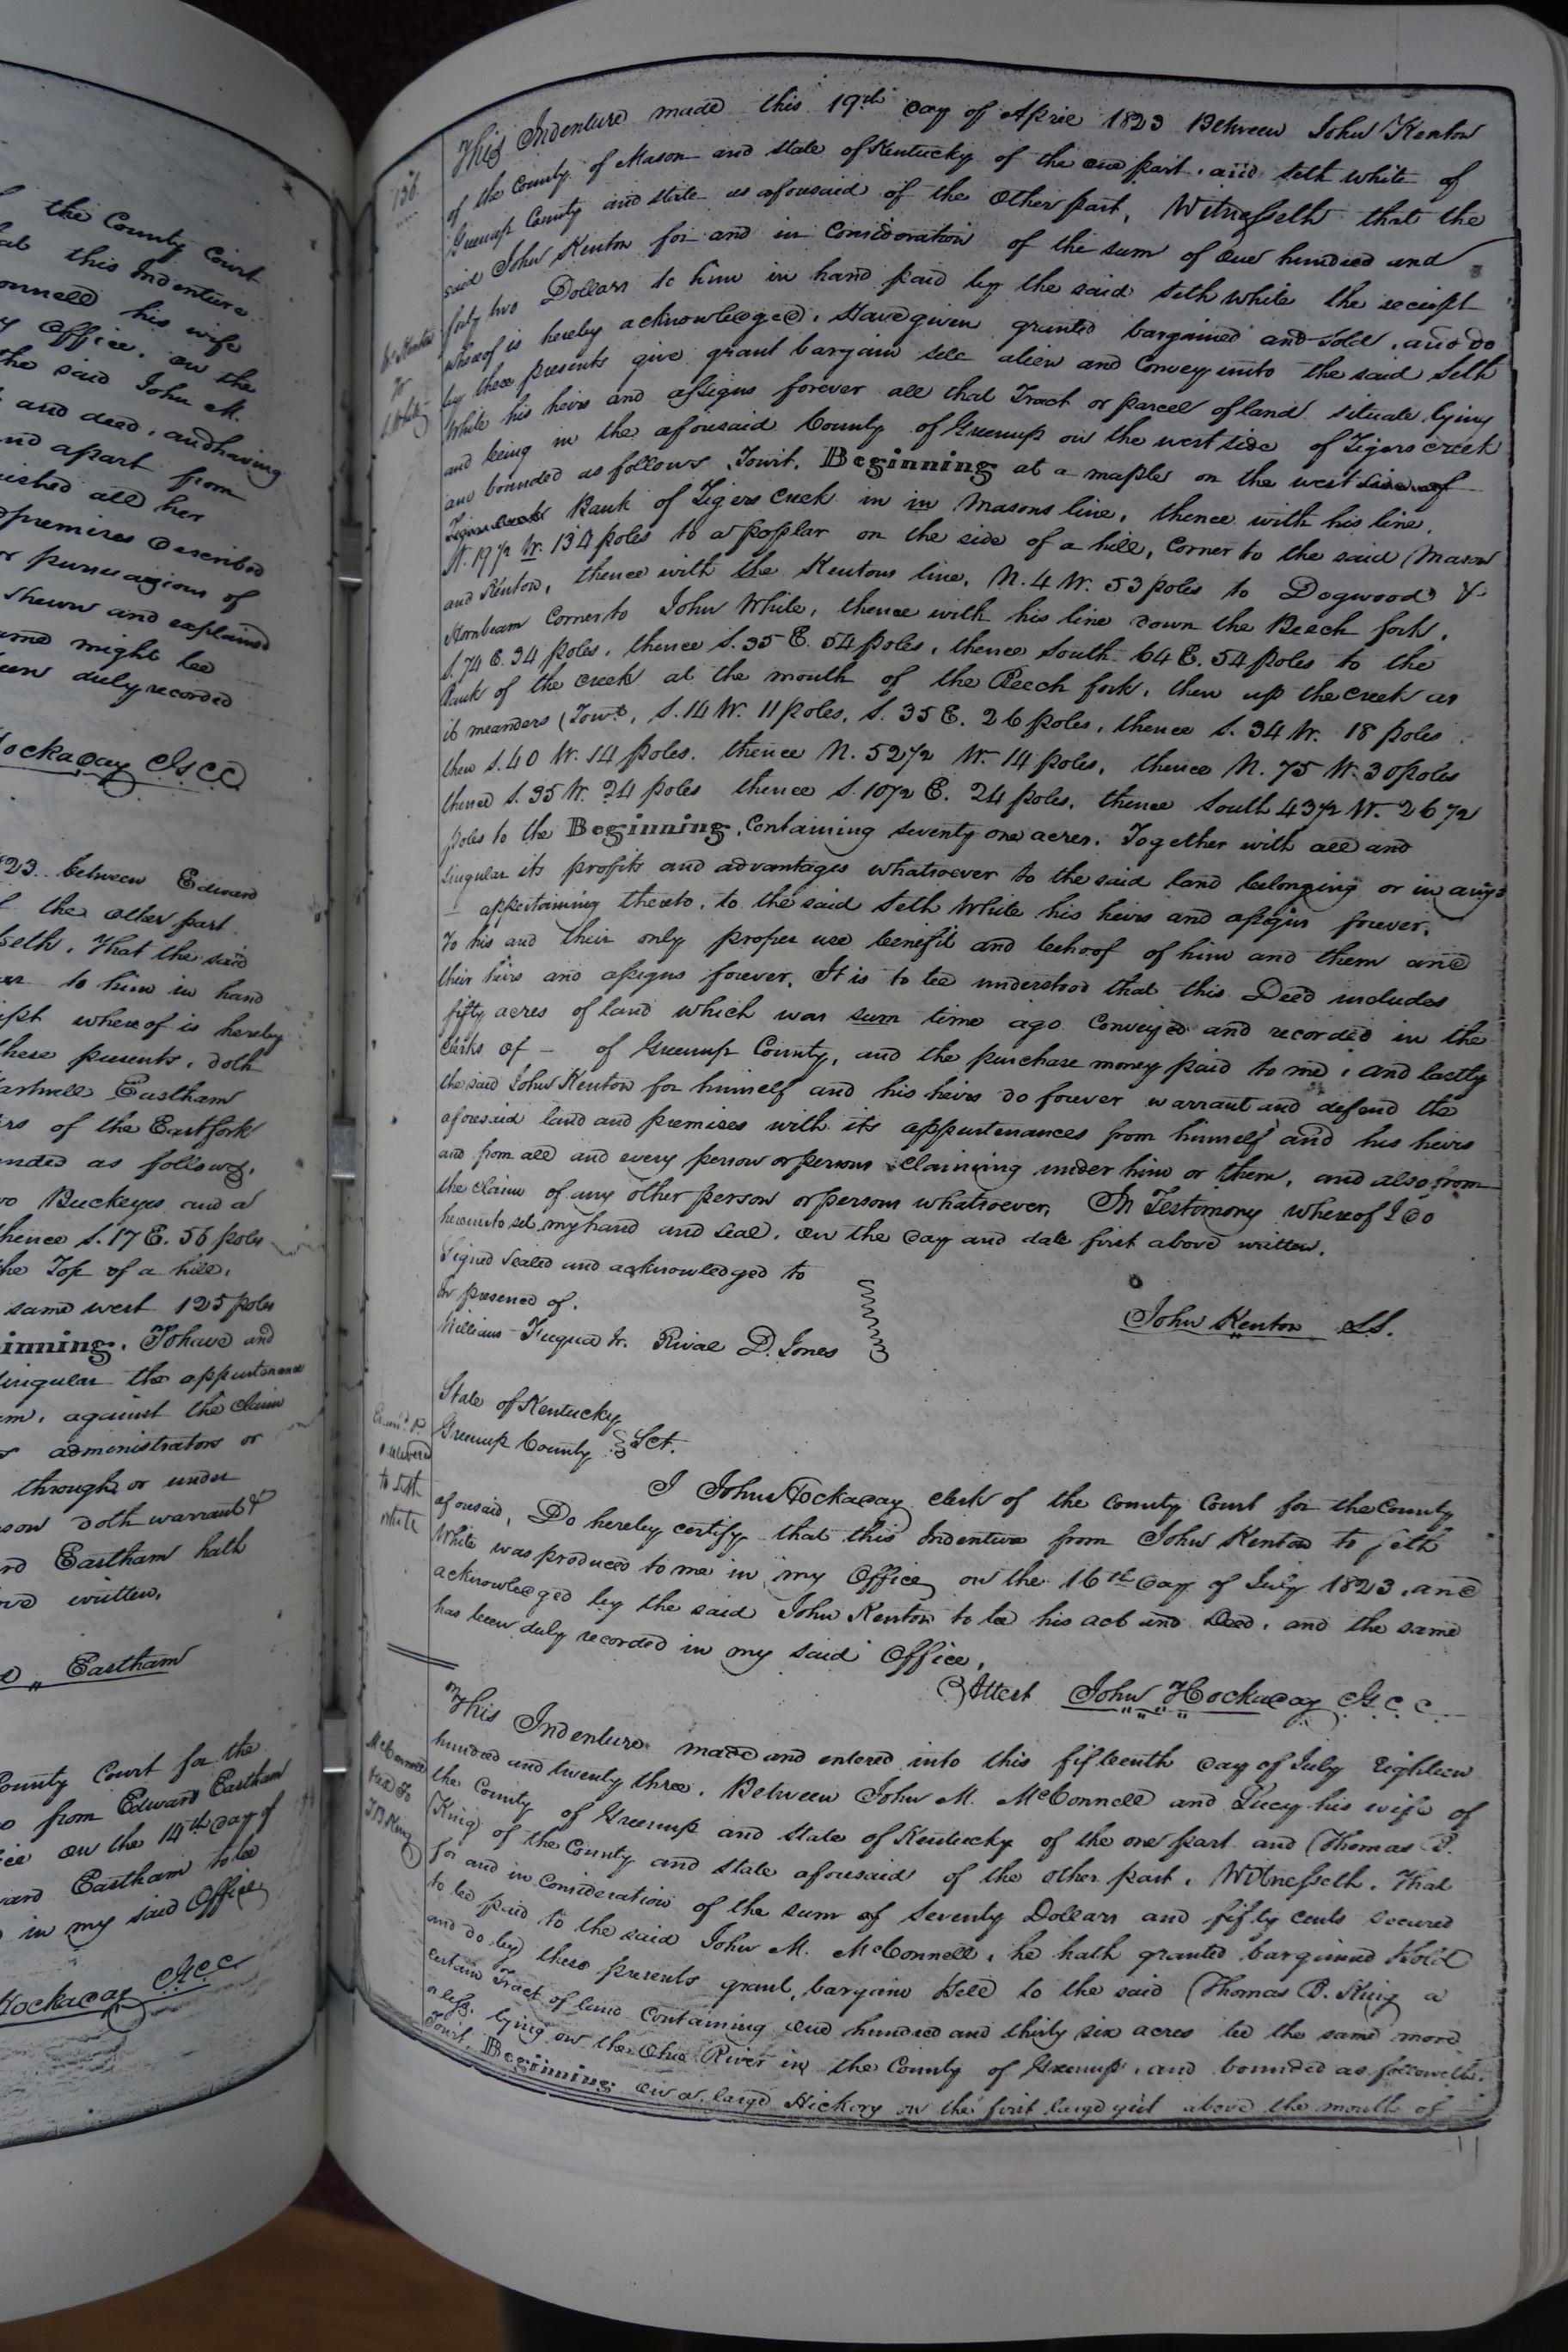 the County Court
this Indenture
his wife
Office. on the
the said John M.
and deed, and having
and apart from
all her
premises described
or persuasions of
shewn and explained
same might be
been duly recorded
Hockaday C.G.C.C
1823 between Edward
the other part
That the said
to him in hand
whereof is hereby
these presents, doth
Hartwell Eastham
of the East fork
as follows,
two Buckeyes and a
thence S. 17 E. 56 poles
the Top of a hill,
same west 125 poles
Beginning. To have and
singular the appurtenance
against the claim
administrators or
through or under
doth warrant &
Eastham hath
written.
Eastham
County Court for the
from Edward Eastham
on the 14th day of
Eastham to be
in my said Office
Hockaday C.G.C.C
136
This Indenture made this 19th day of April 1823 Between John Kenton
of the County of Mason and state of Kentucky of the one part, and Seth White of
Greenup County and state as aforesaid of the Other part, Witnesseth that the
said John Kenton for and in Consideration of the sum of One hundred and
forty two Dollars to him in hand paid by the said Seth White the receipt
Jn Kenton
To
S. White
whereof is hereby acknowledged, Have given granted bargained and sold, and do
by these presents give grant bargain sell alien and Convey unto the said Seth
White his heirs and assigns forever all that Tract or parcel of land situate lying
and being in the aforesaid County of Greenup on the west side of Tigers creek
and bounded as follows, Towit, Beginning at a maple on the west side of
Bank of Tigers Creek in in Masons line, thence with his line,
N. 19 1/2 W. 134 poles to a poplar on the side of a hill, Corner to the said Mason
and Kenton, thence with the Kentons line, N. 4 W. 53 poles to Dogwood &
Hornbeam Corner to John White, thence with his line down the Beech fork,
S. 74 E. 34 poles, thence S. 35 E. 54 poles, thence South 64 E. 54 poles to the
Bank of the creek at the mouth of the Beech fork, then up the creek as
it meanders (Towt, S. 14 W. 11 poles, S. 35 E. 26 poles, thence S. 34 W. 18 poles
then S. 40 W. 14 poles. thence N. 52 1/2 W. 14 poles, thence N. 75 W. 30 poles
thence S. 35 W. 24 poles thence S. 10 1/2 E. 24 poles, thence South 43 1/2 W. 26 1/2
poles to the Beginning, Containing seventy one acres, Together with all and
singular its profits and advantages whatsoever to the said land belonging or in any
- appertaining thereto, to the said Seth White his heirs and assigns forever,
To his and their only proper use benefit and behoof of him and them and
their heirs and assigns forever, It is to be understood that this Deed includes
fifty acres of land which was sum time ago Conveyed and recorded in the
Clerks Of - of Greenup County, and the purchase money paid to me, and lastly
the said John Kenton for himself and his heirs do forever warrant and defend the
aforesaid land and premises with its appurtenances from himself and his heirs
and from all and every person or persons claiming under him or them, and also from
the claim of any other person or persons whatsoever, In Testimony whereof I do
hereunto set my hand and seal, on the day and date first above written.
Signed Sealed and acknowledged to
in presence of.
William Fuqua Jr. Rival D. Jones
John Kenton SS.
State of Kentucky
Greenup County Sct.
delivered
to Seth
White
I John Hockaday clerk of the County Court for the County
aforesaid, Do hereby certify that this Indenture from John Kenton to Seth
White was produced to me in my Office on the 16th day of July 1823, and
acknowledged by the said John Kenton to be his act and Deed, and the same
has been duly recorded in my said Office,
Attest John Hockaday C.G.C.C
McConnell
& ux To
T. B. King
This Indenture made and entered into this fifteenth day of July Eighteen
hundred and twenty three, Between John M. McConnell and Lucy his wife of
the County of Greenup and State of Kentucky of the one part and (Thomas B.
King) of the County and State aforesaid of the other part, Witnesseth, That
for and in Consideration of the sum of Seventy Dollars and fifty cents secured
to be paid to the said John M. McConnell, he hath granted bargained & sold
and do by these presents grant, bargain & sell to the said (Thomas B. King a
certain Tract of land Containing One hundred and thirty six acres be the same more
or less. lying on the Ohio River in the County of Greenup, and bounded as followeth.
Towit, Beginning on a large Hickory on the first large gut above the mouth of